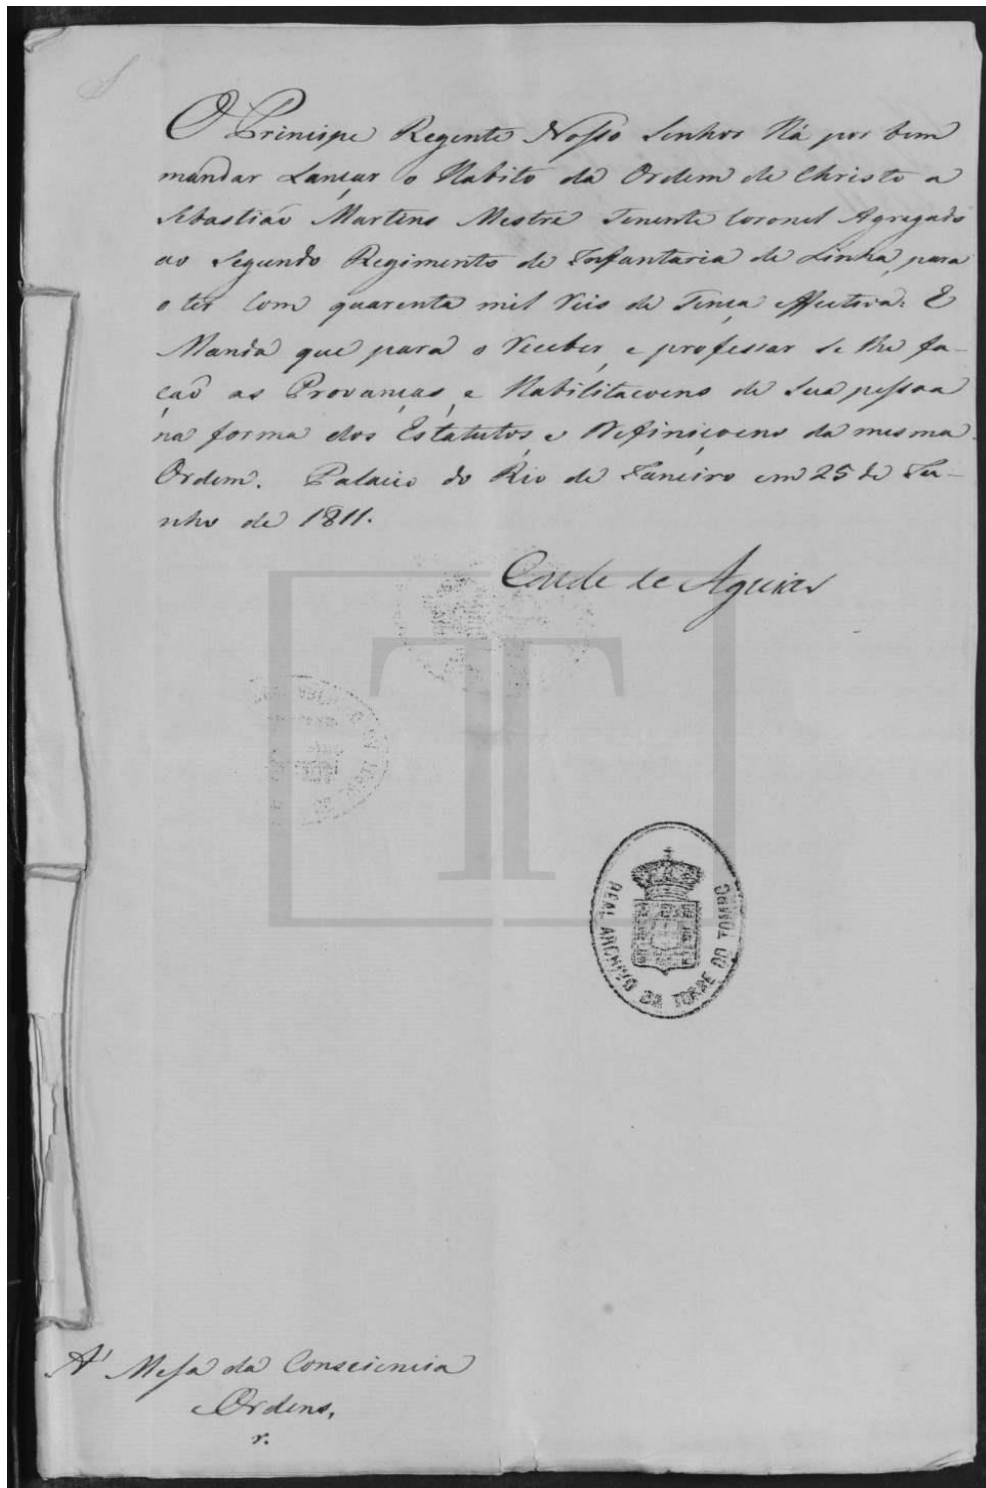 O Principe Regente Nosso Senhor Há por bem
mandar Lançar o Habito da Ordem de Christo a
Sebastião Martins Mestre Tenente Coronel Agregado
ao Segundo Regimento de Infantaria de Linha, para
o ter com quarenta mil reis de Tença effectiva. E
Manda que para o receber, e professar se lhe fa-
ção as Provanças, e Habilitaçoens de Sua pessoa
na forma dos Estatutos, e Definiçoens da mesma
Ordem. Palacio do Rio de Janeiro em 25 de Ju-
nho de 1811.
Conde de Aguiar
T
REAL ARCHIVO DA TORRE DO TOMBO
A' Mesa da Consciencia
e Ordens,
r.